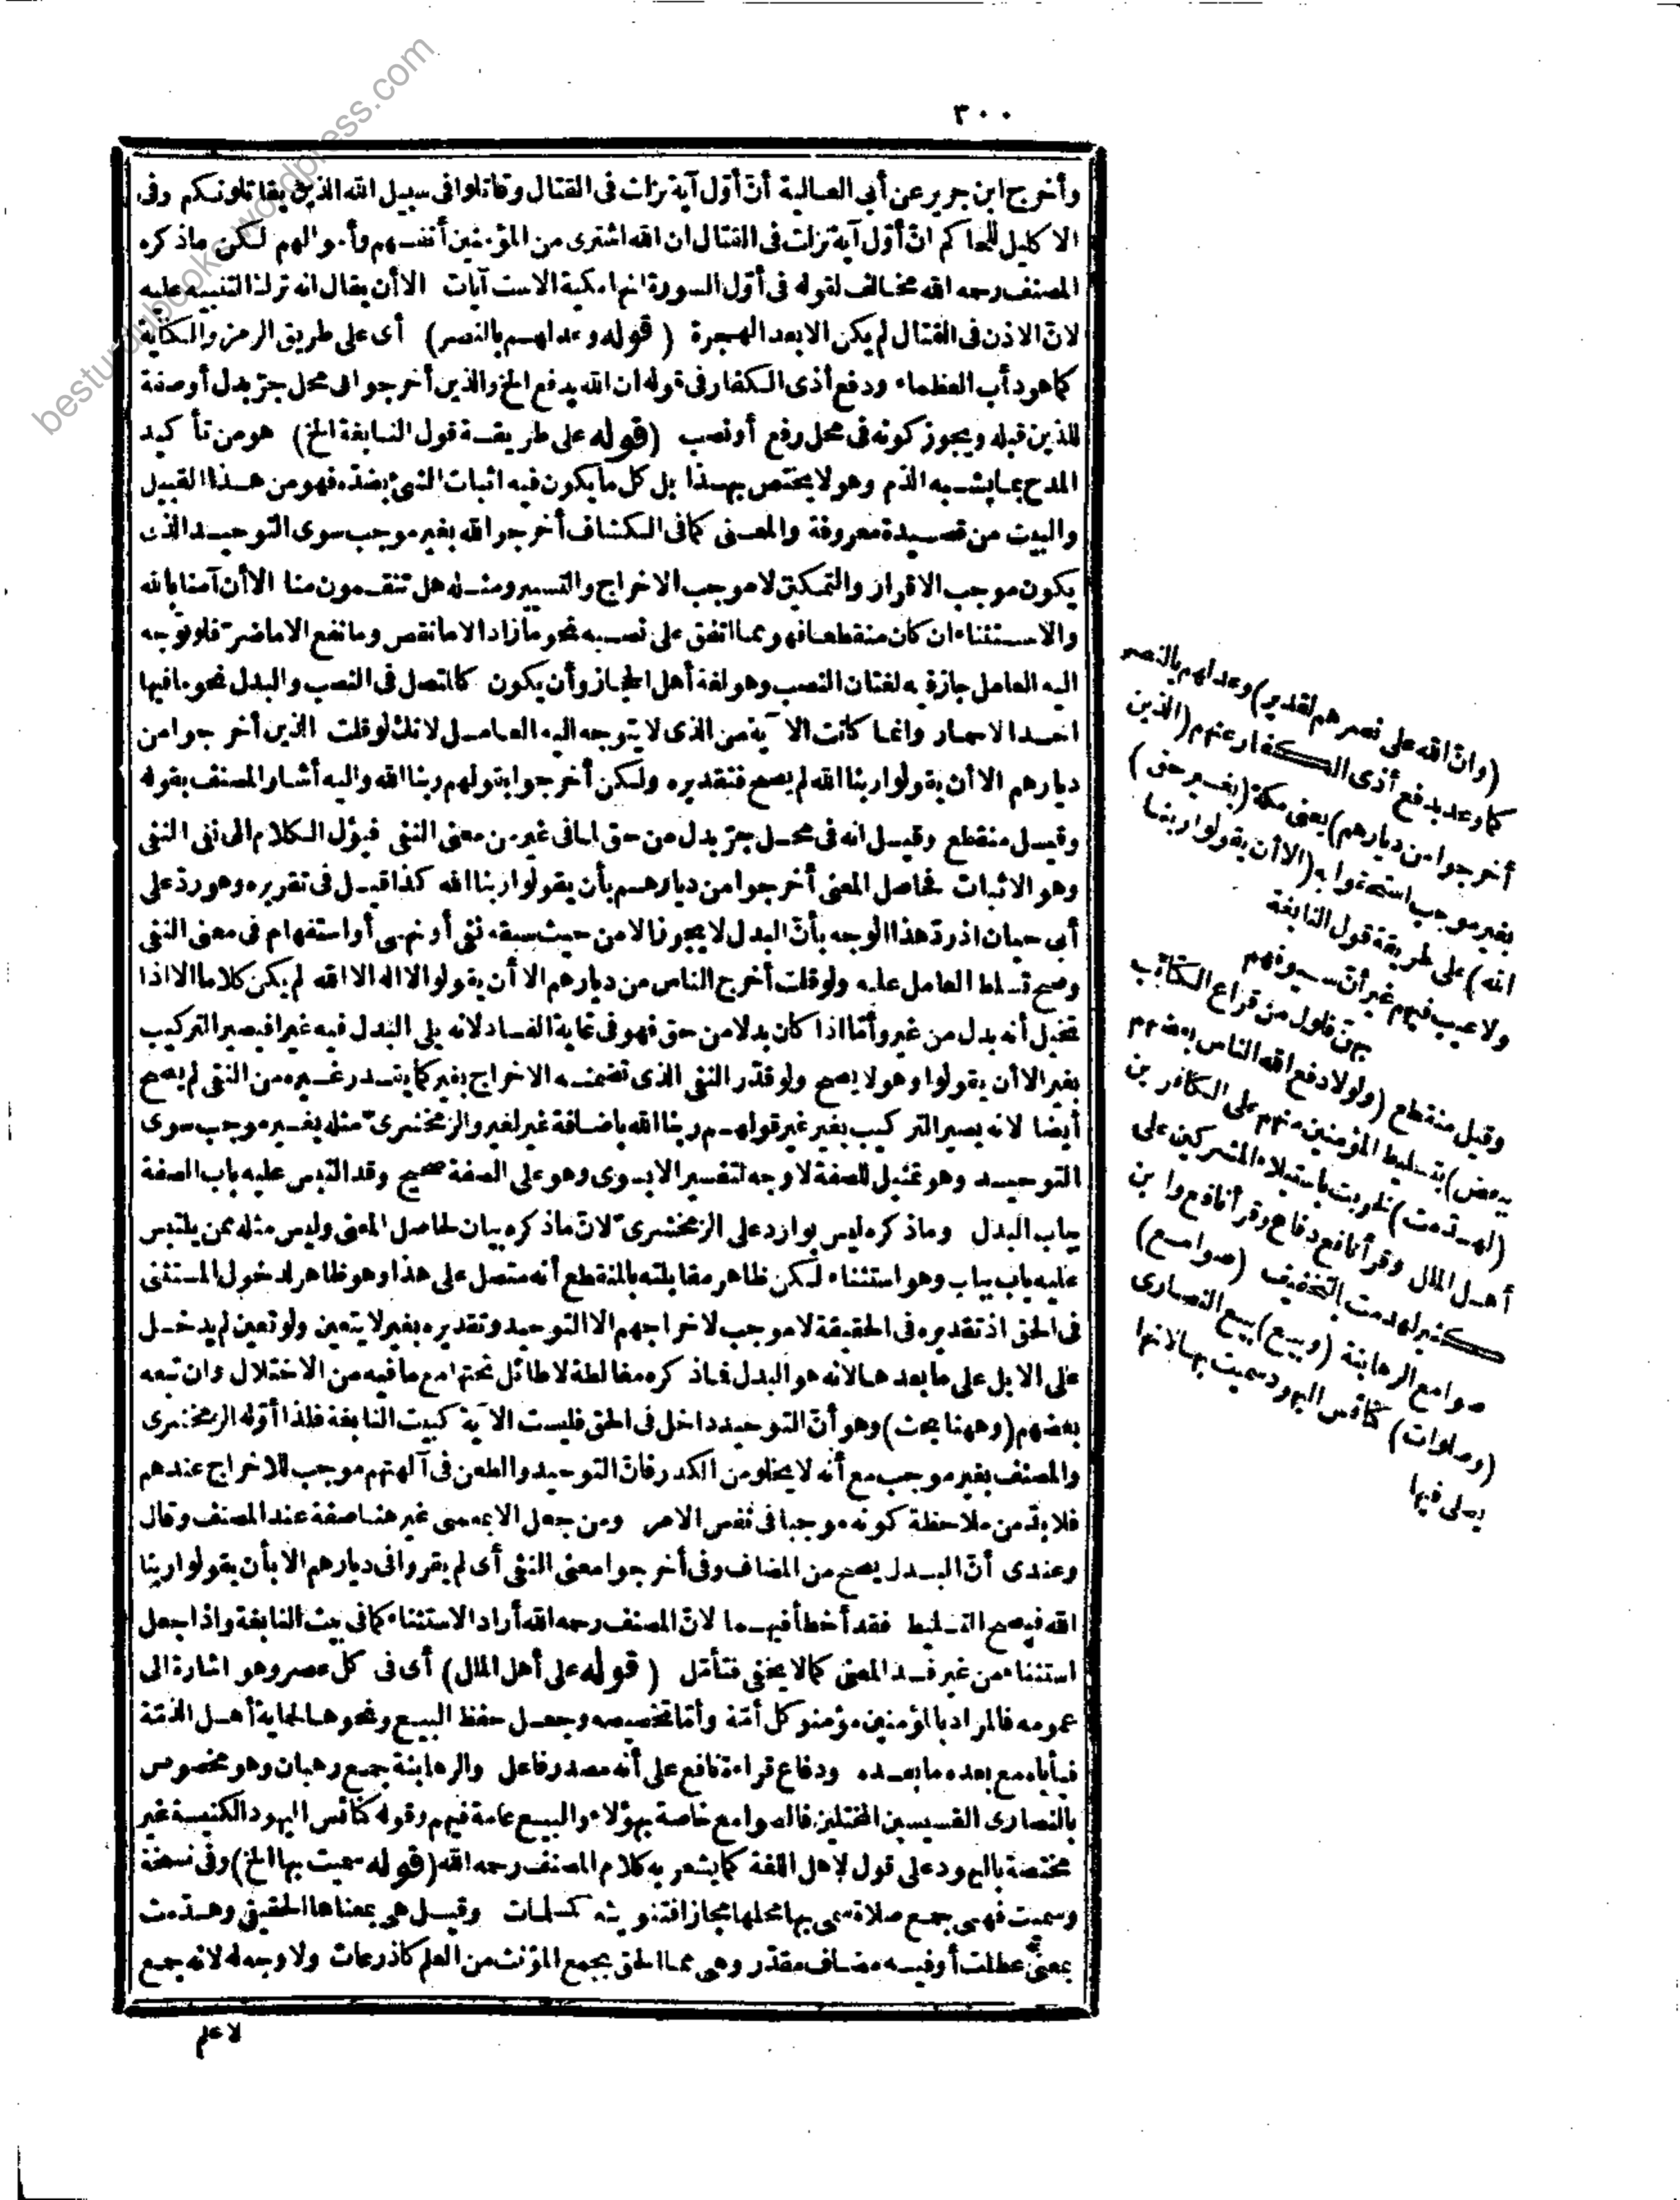 ٣٠٠
وأخرج ابن جرير عن أبي العالية أنّ أوّل آية نزلت في القتال وقاتلوا في سبيل الله الذين يقاتلونكم وفي
الاكليل للحاكم انّ أوّل آية نزلت في القتال ان الله اشترى من المؤمنين أنفسهم وأموالهم لكن ماذكره
المصنف رحمه الله مخالف لقوله في أوّل السورة انها مكية الاست آيات الاأن يقال انه ترك التنبيه عليه
لانّ الاذن في القتال لم يكن الابعد الهجرة (قوله وعدلهم بالنصر) أى على طريق الرمز والكناية
كماهو دأب العظماء ودفع أذى الكفار في قوله ان الله يدفع الخ والذين أخرجوا في محل جرّ بدل أوصفة
للذين قبله ويجوز كونه في محل رفع أونصب (قوله على طريقة قول النابغة الخ) هو من تأكيد
المدح بمايشبه الذم وهو لايختص بهذا بل كل مايكون فيه اثبات الشئ بضدّه فهو من هذا القبيل
والبيت من قصيدة معروفة والمعنى كمافي الكشاف أخرجوا لله بغير موجب سوى التوحيد الذى
يكون موجب الاقرار والتمكين لاموجب الاخراج والتسيير ومثله هل تنقمون منا الاأن آمنا بالله
والاستثناء ان كان منقطعا فهو مما اتفق على نصبه نحو مازاد الامانقص ومانفع الاماضرّ فلو توجه
اليه العامل جاز فيه لغتان النصب وهو لغة أهل الحجاز وأن يكون كالمتصل في النصب والبدل نحو مافيها
أحد الاحمار وانما كانت الآية من الذى لايتوجه اليه العامل لانك لوقلت الذين أخرجوا من
ديارهم الاأن يقولوا ربنا الله لم يصح فتقديره ولكن أخرجوا بقولهم ربنا الله واليه أشار المصنف بقوله
وقيل منقطع وقيل انه في محل جرّ بدل من حق لمافي غير من معنى النفى فيؤل الكلام الى نفى النفى
وهو الاثبات فحاصل المعنى أخرجوا من ديارهم بأن يقولوا ربنا الله كذاقيل في تقريره وهو ردّ على
أبي حيان اذ ردّ هذا الوجه بأنّ البدل لايجوز الامن حيث سبقه نفى أو نهى أو استفهام في معنى النفى
وصح تسلط العامل عليه ولوقلت أخرج الناس من ديارهم الاأن يقولوا لااله الاالله لم يكن كلاما الااذا
تخيل أنه بدل من غير وأمّا اذا كان بدلا من حق فهو في غاية الفساد لانه يلى البدل فيه غير افيصير التركيب
بغير الاأن يقولوا وهو لايصح ولو قدّر النفى الذى تضمنه الاخراج بغير كما يتقدر غيره من النفى لم يصح
أيضا لانه يصير التركيب بغير غير قولهم ربنا الله باضافة غير لغير والزمخشرىّ مثله بغير موجب سوى
التوحيد وهو تمثيل للصفة لاوجه لتفسير الابسوى وهو على الصفة صحيح وقد التبس عليه باب الصفة
بباب البدل وماذكره ليس بوارد على الزمخشرىّ لانّ ماذكره بيان لحاصل المعنى وليس مثله ممن يلتبس
عليه باب بباب وهو استثناء لكن ظاهر مقابلته بالمنقطع أنه متصل على هذا وهو ظاهر لدخول المستثنى
في الحق اذ تقديره في الحقيقة لاموجب لاخراجهم الاالتوحيد وتقديره بغير لايتعين ولو تعين لم يدخل
على الابل على مابعدها لانه هو البدل فماذكره مغالطة لاطائل تحتها مع مافيه من الاختلال وان تبعه
بعضهم (وههنا بحث) وهو أنّ التوحيد داخل في الحق فليست الآية كبيت النابغة فلذا أوّله الزمخشرى
والمصنف بغير موجب مع أنه لايخلو من الكدر فانّ التوحيد والطعن في آلهتهم موجب للاخراج عندهم
فلابدّ من ملاحظة كونه موجبا في نفس الامر ومن جعل الابمعنى غير هنا صفة عند المصنف وقال
وعندى أنّ البدل يصح من المضاف وفي أخرجوا معنى النفى أى لم يقروا في ديارهم الابأن يقولوا ربنا
الله فيصح التسليط فقد أخطأ فيهما لانّ المصنف رحمه الله أراد الاستثناء كمافي بيت النابغة واذا جعل
استثناء من غير فسد المعنى كمالايخفى فتأمّل (قوله على أهل الملل) أى في كل عصر وهو اشارة الى
عمومه فالمراد بالمؤمنين مؤمنو كل أمّة وأمّا تخصيصه وجعل حفظ البيع ونحوها لحماية أهل الذمّة
فيأباه مع بعده مابعده ودفاع قراءة نافع على أنه مصدر فاعل والرهابنة جمع رهبان وهو مخصوص
بالنصارى القسيسين المختلين فالصوامع خاصة بهؤلاء والبيع عامة فيهم وقوله كنائس اليهود الكنيسة غير
مختصة باليهود على قول لاهل اللغة كمايشعر به كلام المصنف رحمه الله (قوله سميت بها الخ) وفي نسخة
وسميت فهى جمع صلاة سمى بها محلها مجازا فتنوينه كمسلمات وقيل هى بمعناها الحقيقى وهدّمت
بمعنى عطلت أوفيه مضاف مقدّر وهى مما ألحق بجمع المؤنث من العلم كاذرعات ولاوجه له لانه جمع
لاعلم
(وانّ الله على نصرهم لقدير) وعدلهم بالنصر
كماوعد بدفع أذى الكفار عنهم (الذين
أخرجوا من ديارهم) يعنى مكة (بغير حق)
بغير موجب استحقوا به (الاأن يقولوا ربنا
الله) على طريقة قول النابغة
ولاعيب فيهم غير أنّ سيوفهم
بهنّ فلول من قراع الكتائب
وقيل منقطع (ولولادفع الله الناس بعضهم
ببعض) بتسليط المؤمنين منهم على الكافرين
(لهدّمت) لخربت باستيلاء المشركين على
أهل الملل وقرأ نافع دفاع وقرأ نافع وابن
كثير لهدمت بالتخفيف (صوامع)
صوامع الرهابنة (وبيع) بيع النصارى
(وصلوات) كنائس اليهود سميت بها لانها
يصلى فيها
besturdubooks.wordpress.com